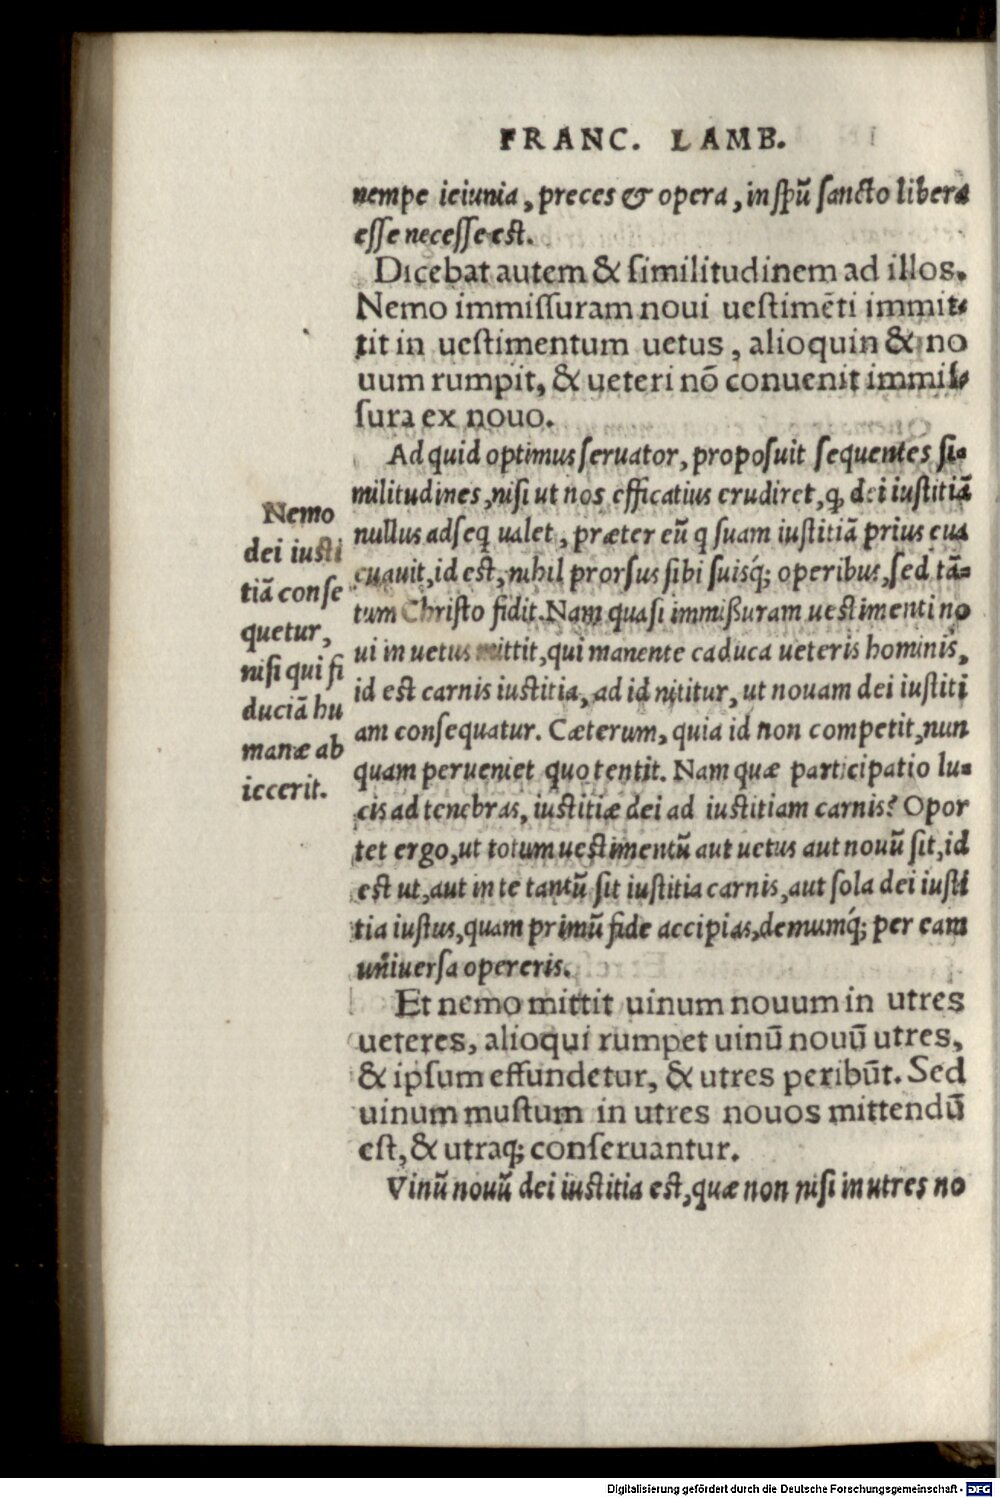 FRANC. LAMB.
nempe ieiunia, preces & opera, in spū sancto libera
esse necesse est.
Dicebat autem & similitudinem ad illos.
Nemo immissuram noui uestimēti immit-
tit in uestimentum uetus, alioquin & no
uum rumpit, & ueteri nō conuenit immis-
sura ex nouo.
Ad quid optimus seruator, proposuit sequentes si-
militudines, nisi ut nos efficatius erudiret, ꝙ dei iustitiā
nullus adseq ualet, præter eū q suam iustitiā prius eua
cuauit, id est, nihil prorsus sibi suisq́; operibus, sed tā-
tum Christo fidit. Nam quasi immißuram uestimenti no
ui in uetus mittit, qui manente caduca ueteris hominis,
id est carnis iustitia, ad id nititur, ut nouam dei iustiti
am consequatur. Cæterum, quia id non competit, nun
quam perueniet quo tentit. Nam quæ participatio lu-
cis ad tenebras, iustitiæ dei ad iustitiam carnis? Opor
tet ergo, ut totum uestimentū aut uetus aut nouū sit, id
est ut, aut in te tantū sit iustitia carnis, aut sola dei iusti
tia iustus, quam primū fide accipias, demumq́; per eam
uniuersa opereris.
Et nemo mittit uinum nouum in utres
ueteres, alioqui rumpet uinū nouū utres,
& ipsum effundetur, & utres peribūt. Sed
uinum mustum in utres nouos mittendū
est, & utraq; conseruantur.
Vinū nouū dei iustitia est, quæ non nisi in utres no
Nemo
dei iusti
tiā conse
quetur,
nisi qui fi
duciā hu
manæ ab
iecerit.
Digitalisierung gefördert durch die Deutsche Forschungsgemeinschaft - DFG